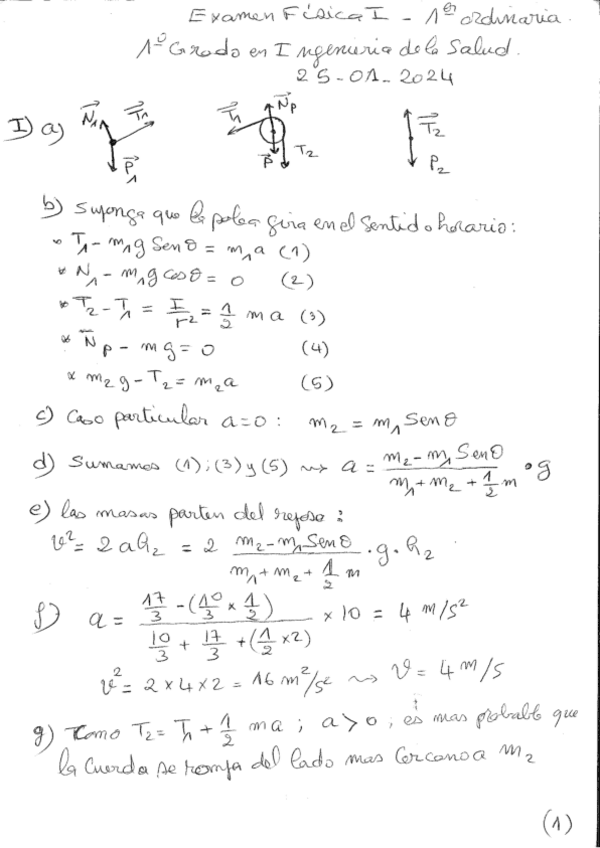 Examen Física I - 1er ordinaria.
1º Grado en Ingenieria de la Salud.
25-01-2024
I) a) N⃗1 T⃗1 P⃗1 T⃗1 N⃗p P⃗ T2 T⃗2 P2
b) Suponga que la polea gira en el sentido horario:
* T1 - m1g Senθ = m1a (1)
* N1 - m1g cosθ = 0 (2)
* T2 - T1 = I/r² = 1/2 ma (3)
* Np - mg = 0 (4)
* m2g - T2 = m2a (5)
c) Caso particular a=0: m2 = m1 Senθ
d) Sumamos (1); (3) y (5) ⇝ a = (m2 - m1 Senθ)/(m1 + m2 + 1/2 m) · g
e) las masas parten del reposo:
v² = 2ah2 = 2 (m2 - m1 Senθ)/(m1 + m2 + 1/2 m) · g · h2
f) a = (17/3 - (10/3 × 1/2))/(10/3 + 17/3 + (1/2 × 2)) × 10 = 4 m/s²
v² = 2 × 4 × 2 = 16 m²/s² ⇝ v = 4 m/s
g) Como T2 = T1 + 1/2 ma ; a > 0 ; es mas probable que
la cuerda se rompa del lado mas cercano a m2
(1)